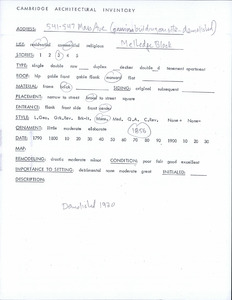 CAMBRIDGE ARCHITECTURAL INVENTORY
ADDRESS: 541-547 Mass Ave. (demolished)
USE: residential commercial religious Melledge Block
STORIES: 1 2 3 4 5
TYPE: single double row duplex decker double d tenement apartment
ROOF: hip gable front gable flank mansard flat
MATERIAL: frame brick SIDING: original subsequent
PLACEMENT: narrow to street broad to street square
ENTRANCE: flank front side front center
STYLE: L.Geo, Gk.Rev, Ital, Mans, Med, Q.A, C.Rev, None + None+
ORNAMENT: little moderate elaborate 1856
DATE: 1790 1800 10 20 30 40 50 60 70 80 90 1900 10 20 30
MAP:
REMODELING: drastic moderate minor CONDITION: poor fair good excellent
IMPORTANCE TO SETTING: detrimental none moderate great INITIALED:
DESCRIPTION:
Demolished 1920